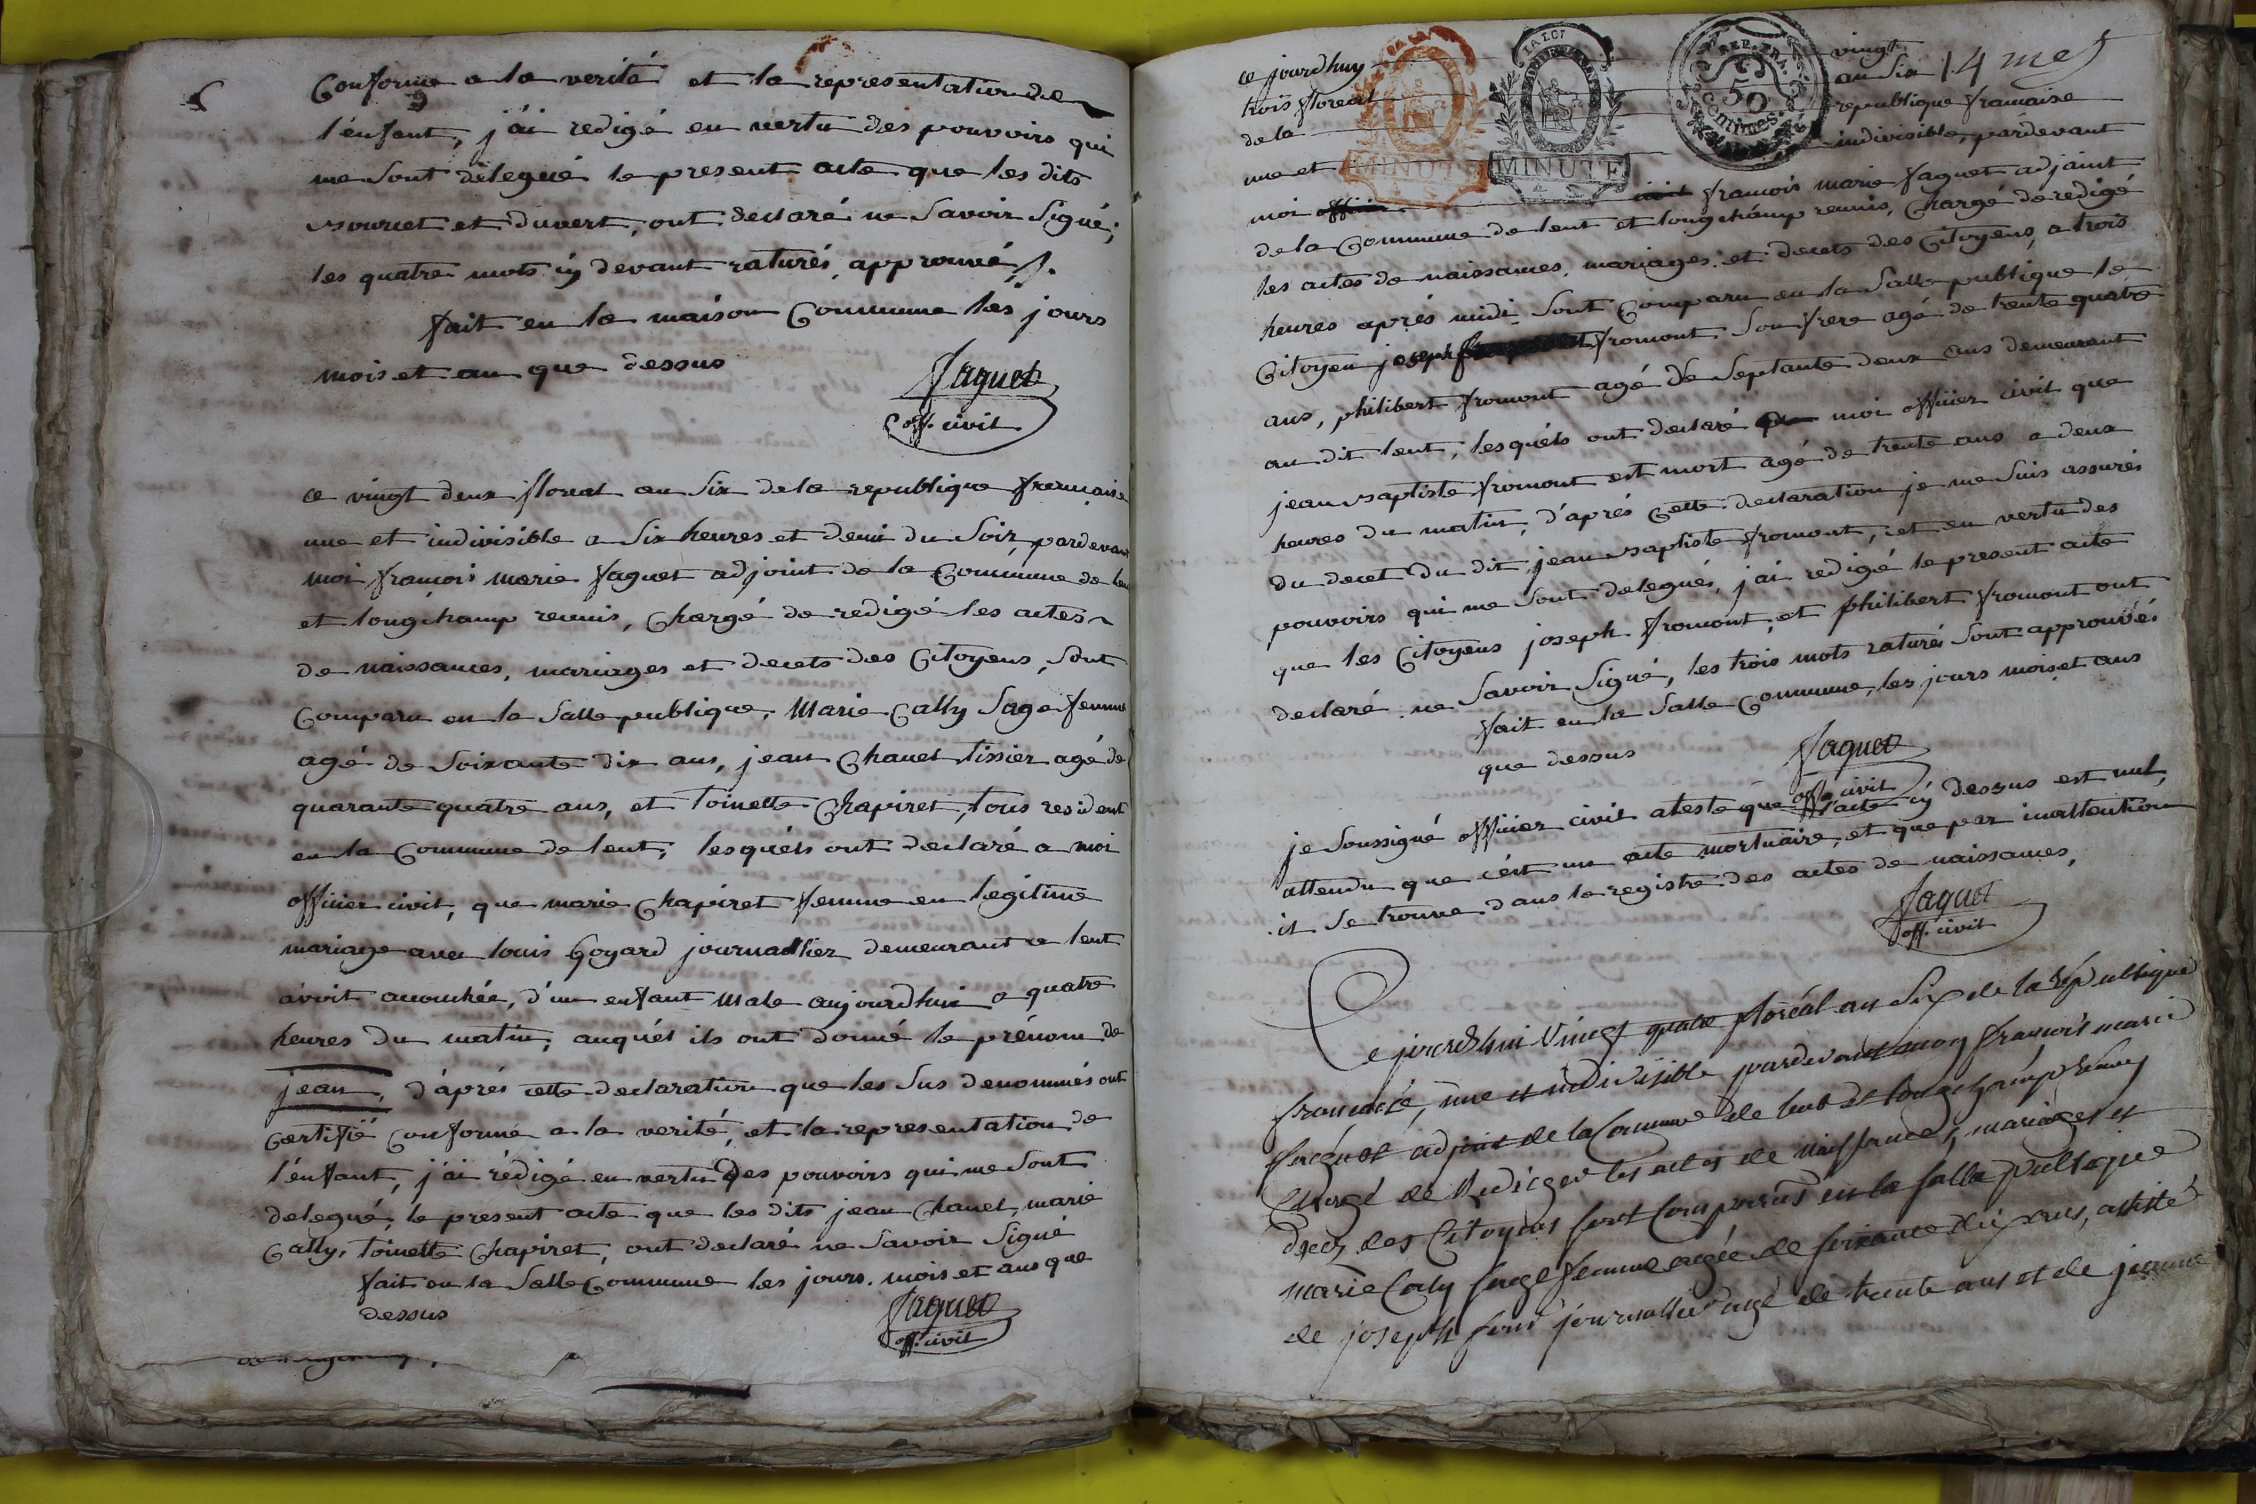 Conforme a la verité et la representation de
l'enfant, j'ai redigé en vertu des pouvoirs qui
me sont délegué le present acte que les dits
et duvert, ont declaré ne savoir signé;
les quatre mots cy devant raturés approuvé
fait en la maison Commune les jours
mois et an que dessus
Jaguet
off. civil
ce vingt deux floreal an six de la republique francaise
une et indivisible a six heures et demi du soir, pardevant
moi francois marie Jaguet adjoint de la Commune de lent
et longchamp reunis, Chargé de redigé les actes
de naissances, mariages et decets des Citoyens, sont
Comparu en la Salle publique, Marie Cally Sage femme
agé de soixante dix ans, jean Chanel tissier agé de
quarante quatre ans, et toinette Chapiret, tous resident
en la Commune de lent, lesquéls ont declaré a moi
officier civil, que marie Chapiret femme en legitime
mariage avec louis Goyard journallier demeurant a lent
avoit accouchée, d'un enfant Male aujourdhui a quatre
heures du matin, auquél ils ont donné le prénom de
jean, d'aprés cette declaration que les sus denommés ont
Certifié conforme a la verité, et la representation de
l'enfant, j'ai rédigé en vertu des pouvoirs qui me sont
delegué, le present acte que les dits jean Chanel, marie
Cally, toinette Chapiret, ont declaré ne savoir signé
fait en la Salle Commune les jours, mois et ans que
dessus
Jaguet
off. civil
14 me
ce jourdhuy vingt
trois floreal an six
de la republique francaise
une et indivisible, pardevant
moi francois marie Jaguet adjoint
de la Commune de lent et longchamp reunis, Chargé de redigé
les actes de naissances, mariages et decets des Citoyens, a trois
heures aprés midi sont Comparu en la Salle publique le
Citoyen joseph fromont son frere agé de trente quatre
ans, philibert fromont agé de septante deux ans demeurant
au dit lent, lesquéls ont declaré moi officier civil que
jean Baptiste fromont est mort agé de trente ans a deux
heures du matin, d'aprés cette declaration je me suis assurés
du decet du dit jean Baptiste fromont, et en vertu des
pouvoirs qui me sont delegués, j'ai redigé le present acte
que les Citoyens joseph fromont, et philibert fromont ont
declaré ne savoir signé, les trois mots raturés sont approuvés
fait en la Salle Commune, les jours mois et ans
que dessus
Jaguet
off. civil
je soussigné officier civil ateste que l'acte cy dessus est nul,
attendu que c'ést un acte mortuaire, et que par inattention
il se trouve dans le registre des actes de naissances,
Jaguet
off. civil
Ce jourdhui vingt quatre floréal an Six de la République
francaise, une et indivisible pardevant moy francois marie
Jaguet adjoint de la Commune de lent et longchamp réuny
Chargé de Rediger les actes de naissances, mariages et
décéz des Citoyens sont Comparus en la salle publique
marie Caly sage femme agée de soixante dix ans, assisté
de joseph journallier agé de trente ans et de jeanne